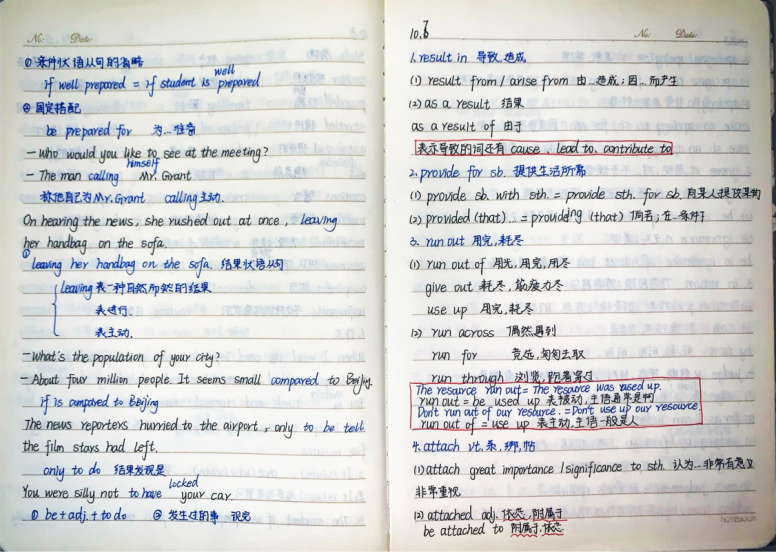 No: Date:
① 条件状语从句的省略
well
if well prepared = if student is prepared
② 固定搭配
be prepared for 为...准备
- Who would you like to see at the meeting?
himself
- The man calling Mr. Grant
称他自己为Mr. Grant calling主动.
On hearing the news, she rushed out at once, leaving
her handbag on the sofa.
① leaving her handbag on the sofa. 结果状语从句
leaving 表一种自然而然的结果
表进行.
表主动.
- What's the population of your city?
- About four million people. It seems small compared to Beijing
if is compared to Beijing
The news reporters hurried to the airport, only to be tell
the film stars had left.
only to do 结果发现是
locked
You were silly not to have your car.
① be + adj. + to do ② 发生过的事 现完
10.6
No: Date:
1. result in 导致,造成
(1) result from / arise from 由...造成;因...而产生
(2) as a result 结果
as a result of 由于
表示导致的词还有 cause、lead to、contribute to
2. provide for sb. 提供生活所需
(1) provide sb. with sth. = provide sth. for sb. 向某人提供某物
(2) provided (that)... = providing (that) 倘若;在...条件下
3. run out 用完,耗尽
(1) run out of 用光,用完,用尽
give out 耗尽,筋疲力尽
use up 用完,耗尽
(2) run across 偶然遇到
run for 竞选,匆匆去取
run through 浏览,跑着穿过
The resource run out = The resource was used up.
run out = be used up 表被动,主语通常是物
Don't run out of our resource. = Don't use up our resource.
run out of = use up 表主动,主语一般是人
4. attach vt. 系,绑,帖
(1) attach great importance / significance to sth. 认为...非常有意义
非常重视
(2) attached adj. 依恋,附属于
be attached to 附属于,依恋
NOTEBOOK